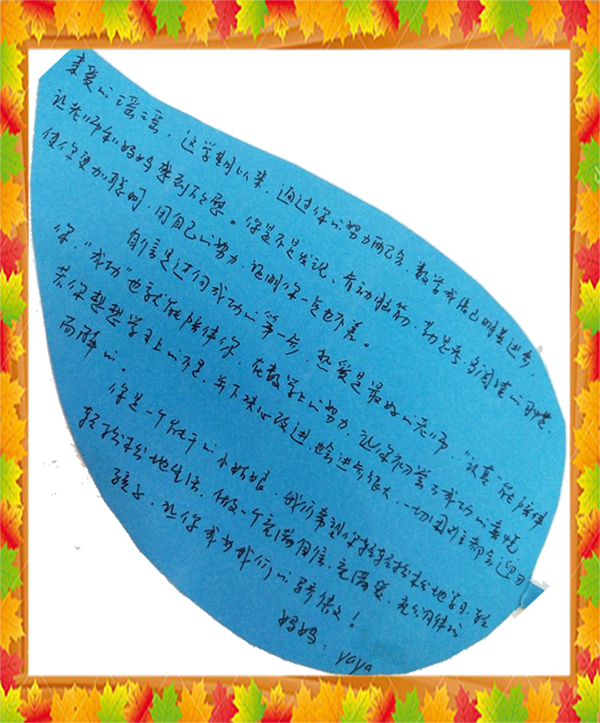 亲爱的瑶瑶，这学期以来，通过你的努力而已会，数学成绩已明显进步
让老师和妈妈感到欣慰。你是不是发现，会动脑筋，勤思考，多阅读的习惯
使你更加聪明，用自己的努力，证明你一点也不差。
自信是迈向成功的第一步，热爱是最好的老师，“认真”能陪伴
你，“成功”也就能陪伴你，在数学上的努力，让你初尝了成功的喜悦
若你想想学习上的不足，并下决心改进，哈进步很大，一切困难都会迎刃
而解的。
你是一个能干的小姑娘，我们希望你轻轻松松地学习，轻
轻松松地生活，做一个充满自信，充满爱，充满阳律的
孩子，让你成为我们的骄傲！
妈妈：yaya